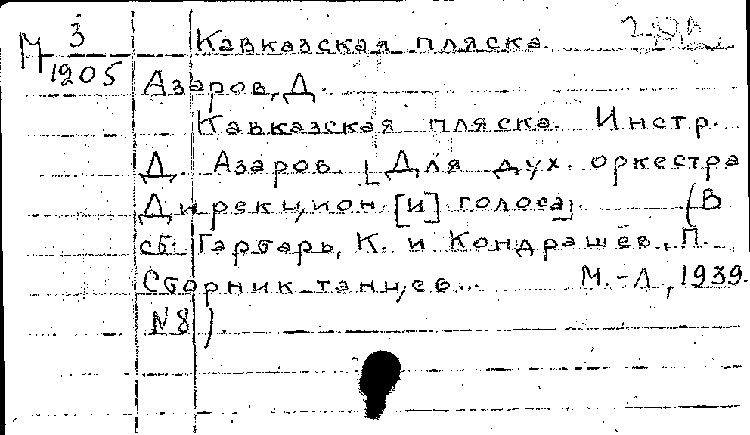 М 3/1205 Кавказская пляска
Азаров, Д.
Кавказская пляска. Инстр.
Д. Азаров. [Для дух. оркестра
Дирекцион. [и] голоса]. (В
сб: Гарбарь, К. и Кондрашёв, П.
Сборник танцев... М.-Л, 1939.
N8)